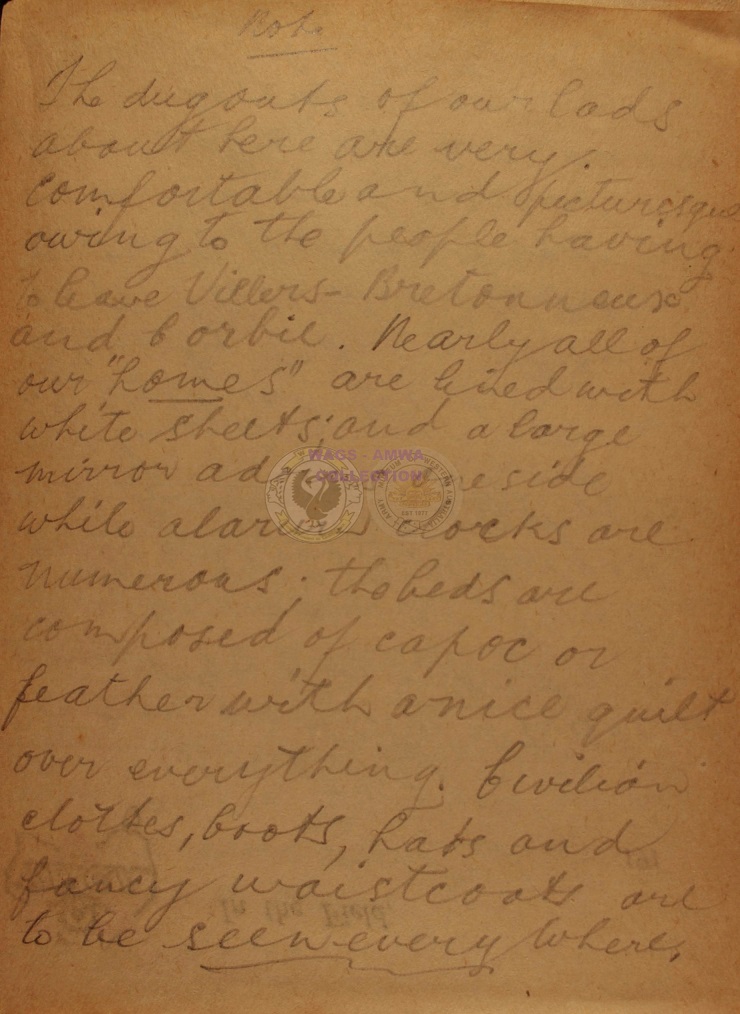 Note.
The dugouts of our lads
about here are very
comfortable and picturesque
owing to the people having
to leave Villers-Bretonneux
and Corbie. Nearly all of
our "homes" are lined with
white sheets; and a large
mirror side
while alarm clocks are
numerous; the beds are
composed of capoc or
feather with a nice quilt
over everything. Civilian
clothes, boots, hats and
fancy waistcoats are
to be seen every where.
WAGS - AMWA
COLLECTION
In the Field.